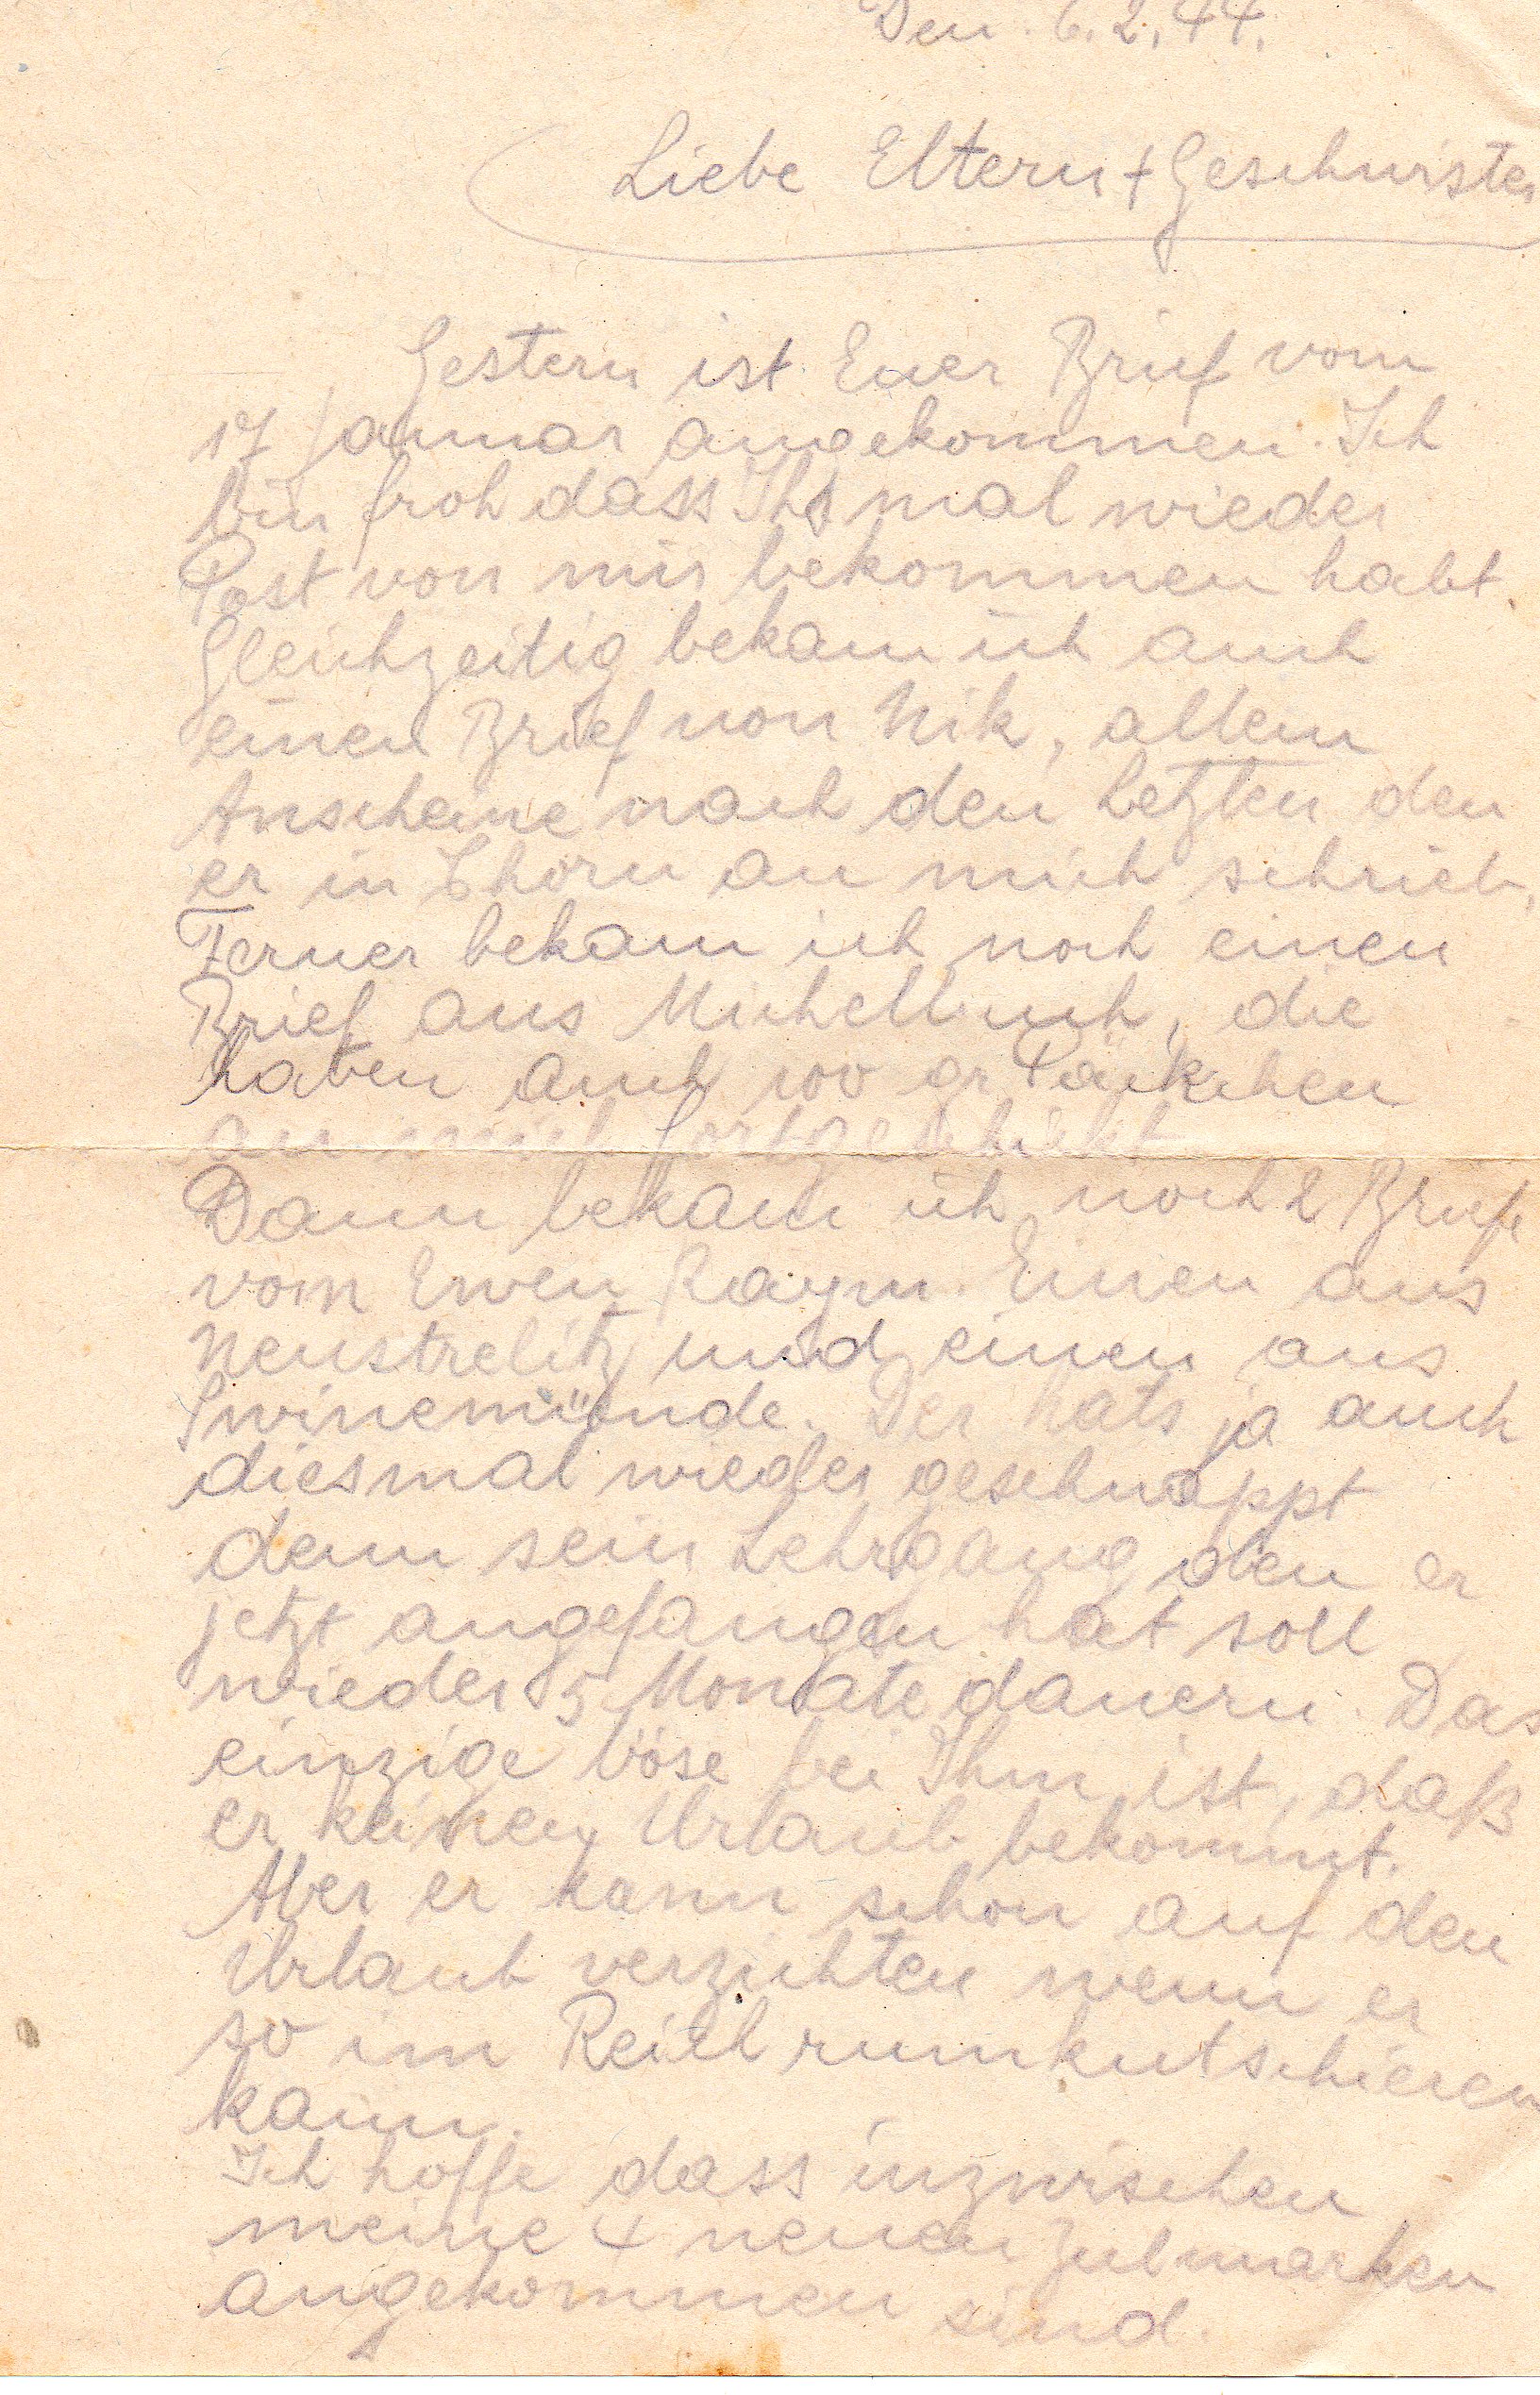 Den. 6. 2. 44.
Liebe Eltern + Geschwister
Gestern ist Euer Brief vom
17 Januar angekommen. Ich
bin froh dass Ihr mal wieder
Post von mir bekommen habt.
Gleichzeitig bekam ich auch
einen Brief von Nik, allem
Anscheine nach den letzten den
er in Thorn an mich schrieb,
Ferner bekam ich noch einen
Brief aus Michelbuch, die
haben auch 100 gr Päckchen
an mich fortgeschickt
Dann bekam ich noch 2 Briefe
vom Erwen Raym. Einen aus
Neustrelitz und einen aus
Swinemünde. Der hats ja auch
diesmal wieder geschnappt
denn sein Lehrgang den er
jetzt angefangen hat soll
wieder 5 Monate dauern. Das
einzige böse bei Ihm ist, daß
er keinen Urlaub bekommt.
Aber er kann schon auf den
Urlaub verzichten wenn er
so im Reich rumkutschieren
kann.
Ich hoffe dass inzwischen
meine 4 neuen Zulmarken
angekommen sind.